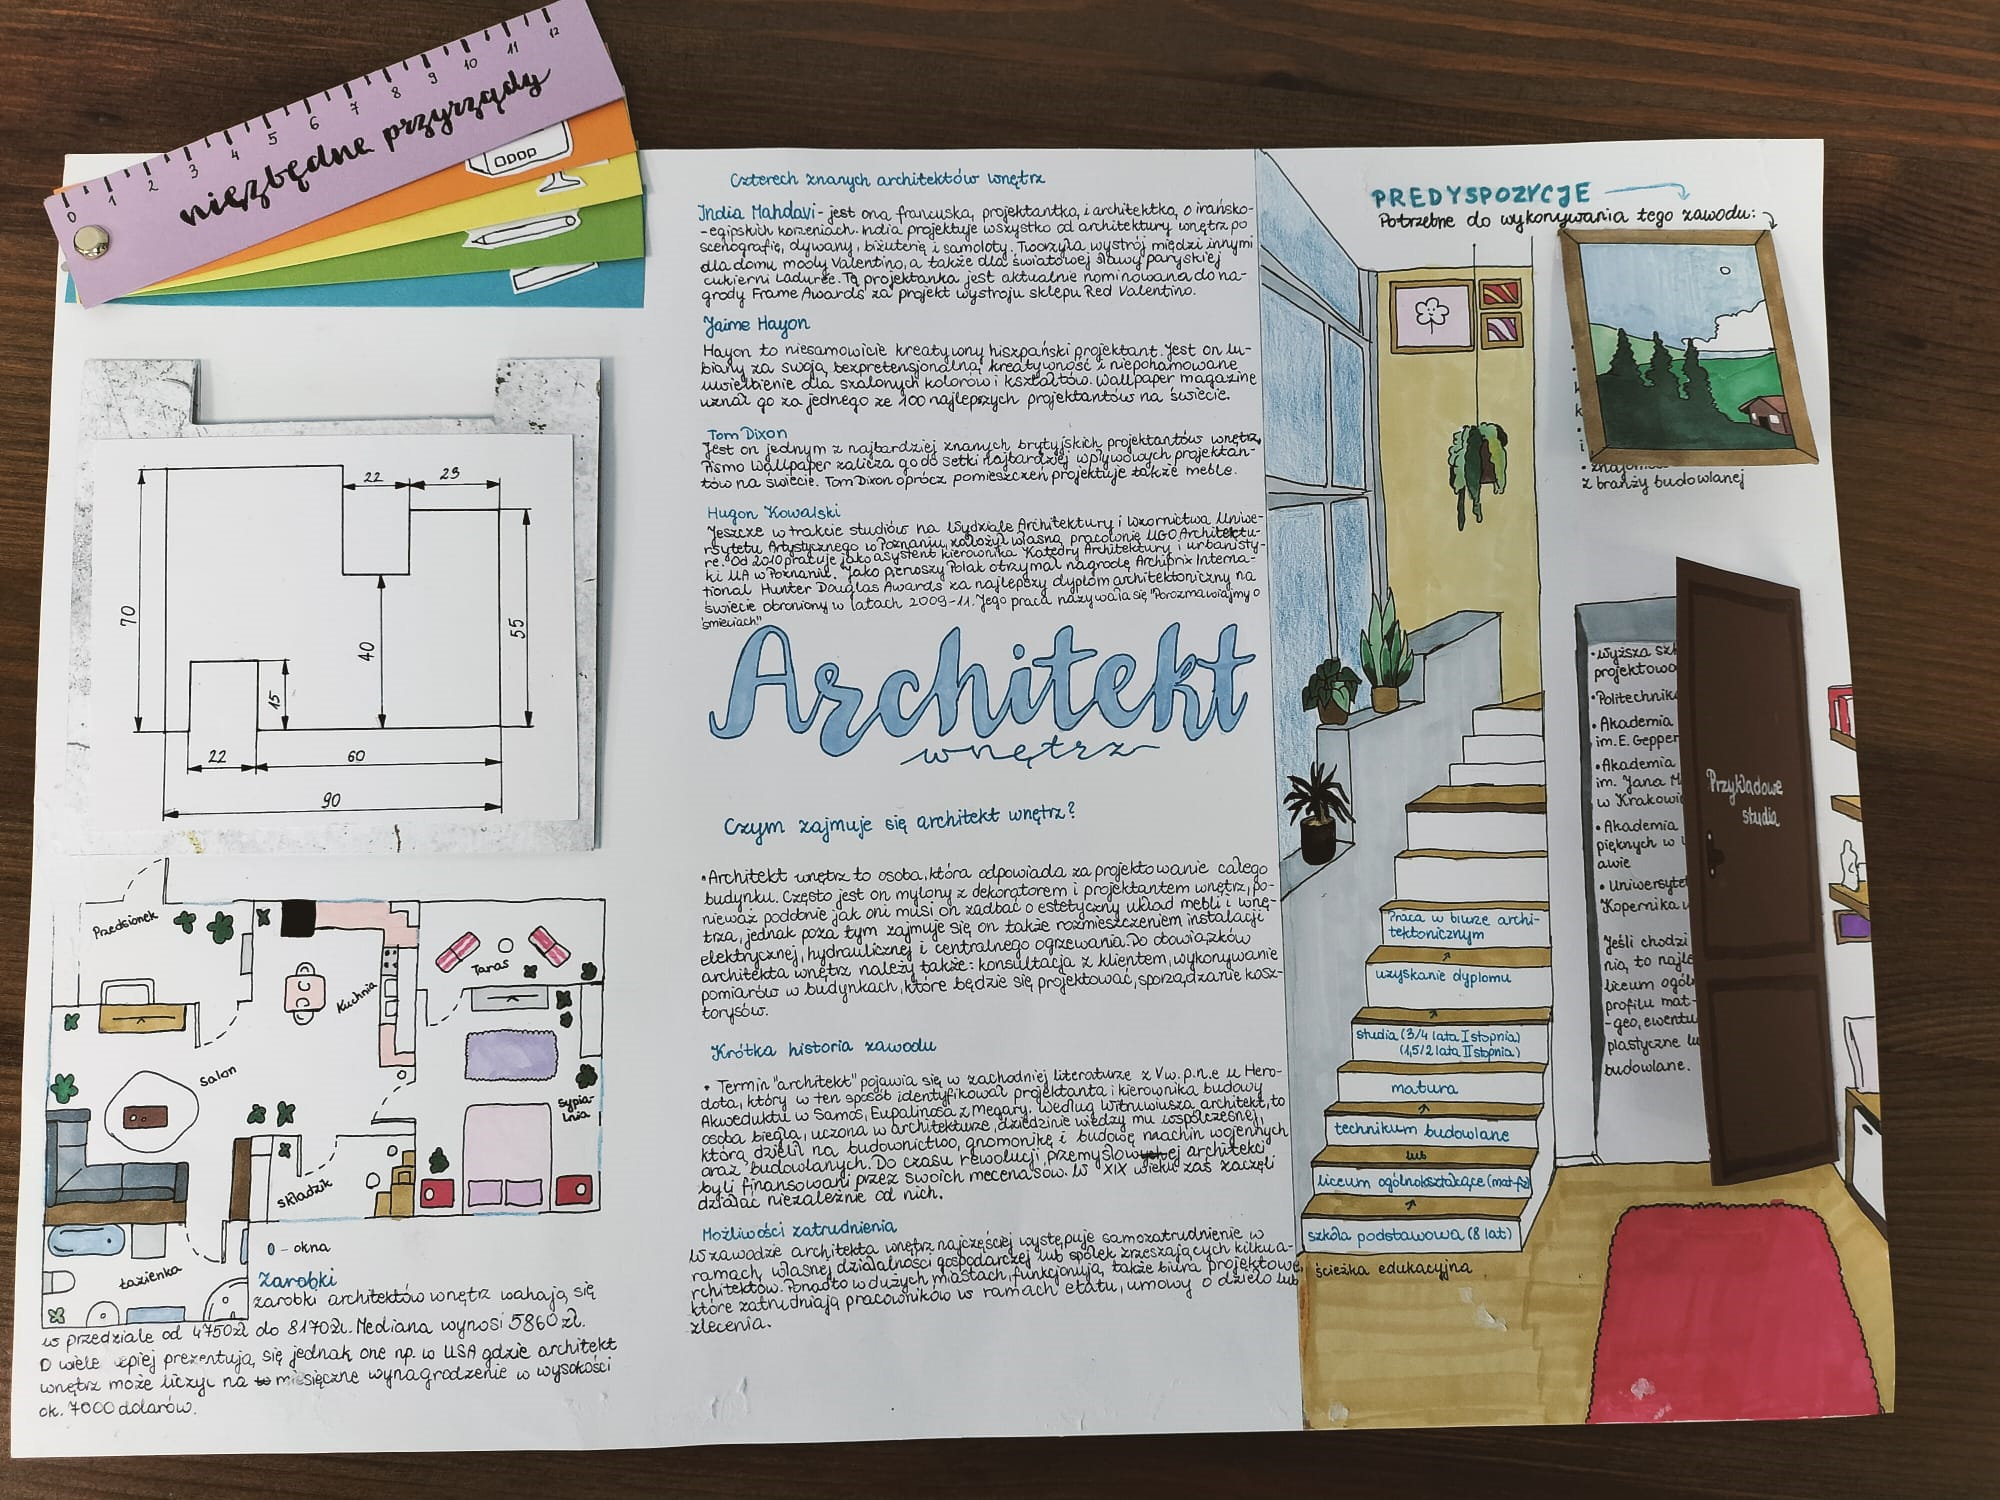 0 1 2 3 4 5 6 7 8 9 10 11 12
niezbędne przyrządy
22
23
70
40
55
15
22
60
90
Przedsionek
Taras
Kuchnia
Salon
sypial-
nia
składzik
Łazienka
0 - okna
Zarobki
zarobki architektów wnętrz wahają się
w przedziale od 4750zł do 8170zł. Mediana wynosi 5860zł.
O wiele lepiej prezentują się jednak one np. w USA gdzie architekt
wnętrz może liczyć na miesięczne wynagrodzenie w wysokości
ok. 7000 dolarów.
Czterech znanych architektów wnętrz
India Mahdavi - jest ona francuską projektantką i architektką o irańsko-
-egipskich korzeniach. India projektuje wszystko od architektury wnętrz po
scenografię, dywany, biżuterię i samoloty. Tworzyła wystrój między innymi
dla domu mody Valentino, a także dla światowej sławy paryskiej
cukierni Laduree. Ta projektanka jest aktualnie nominowana do na-
grody Frame Awards za projekt wystroju sklepu Red Valentino.
Jaime Hayon
Hayon to niesamowicie kreatywny hiszpański projektant. Jest on lu-
biany za swoją bezpretensjonalną kreatywność i niepohamowane
uwielbienie dla szalonych kolorów i kształtów. Wallpaper magazine
uznał go za jednego ze 100 najlepszych projektantów na świecie.
Tom Dixon
Jest on jednym z najbardziej znanych brytyjskich projektantów wnętrz.
Pismo Wallpaper zalicza go do setki najbardziej wpływowych projektan-
tów na świecie. Tom Dixon oprócz pomieszczeń projektuje także meble.
Hugon Kowalski
Jeszcze w trakcie studiów na Wydziale Architektury i Wzornictwa Uniwe-
rsytetu Artystycznego w Poznaniu założył własną pracownię UGO Architektu-
re. Od 2010 pracuje jako asystent kierownika Katedry Architektury i urbanisty-
ki UA w Poznaniu. Jako pierwszy Polak otrzymał nagrodę Archiprix Interna-
tional Hunter Douglas Awards za najlepszy dyplom architektoniczny na
świecie obroniony w latach 2009-11. Jego praca nazywała się "Porozmawiajmy o
śmieciach"
Architekt
wnętrz
Czym zajmuje się architekt wnętrz?
• Architekt wnętrz to osoba, która odpowiada za projektowanie całego
budynku. Często jest on mylony z dekoratorem i projektantem wnętrz, po-
nieważ podobnie jak oni musi on zadbać o estetyczny układ mebli i wnę-
trza, jednak poza tym zajmuje się on także rozmieszczeniem instalacji
elektrycznej, hydraulicznej i centralnego ogrzewania. Do obowiązków
architekta wnętrz należy także: konsultacja z klientem, wykonywanie
pomiarów w budynkach, które będzie się projektować, sporządzanie kosz-
torysów.
Krótka historia zawodu
• Termin "architekt" pojawia się w zachodniej literaturze z V w. p.n.e u Hero-
dota, który w ten sposób identyfikował projektanta i kierownika budowy
Akweduktu w Samos, Eupalinosa z Megary. Według Witruwiusza architekt, to
osoba biegła, uczona w architekturze, dziedzinie wiedzy mu współczesnej,
którą dzielił na budownictwo, gnomonikę i budowę machin wojennych
oraz budowlanych. Do czasu rewolucji przemysłowej architekci
byli finansowani przez swoich mecenasów. W XIX wieku zaś zaczęli
działać niezależnie od nich.
Możliwości zatrudnienia
W zawodzie architekta wnętrz najczęściej występuje samozatrudnienie w
ramach własnej działalności gospodarczej lub spółek zrzeszających kilku a-
rchitektów. Ponadto w dużych miastach funkcjonują także biura projektowe,
które zatrudniają pracowników w ramach etatu, umowy o dzieło lub
zlecenia.
PREDYSPOZYCJE
Potrzebne do wykonywania tego zawodu:
z branży budowlanej
Praca w biurze archi-
tektonicznym
uzyskanie dyplomu
studia (3/4 lata I stopnia)
(1,5/2 lata II stopnia)
matura
technikum budowlane
lub
liceum ogólnokształcące (mat-fiz)
szkoła podstawowa (8 lat)
ścieżka edukacyjna
• Wyższa
projektowo
• Politechnik
• Akademia
im. E. Gepper
• Akademia
im. Jana M
w Krakowi
• Akademia
pięknych w
awie
• Uniwersyte
Kopernika w
Jeśli chodzi
nia, to najle
liceum ogól
profilu mat-
-geo, ewentu
plastyczne lu
budowlane.
Przykładowe
studia